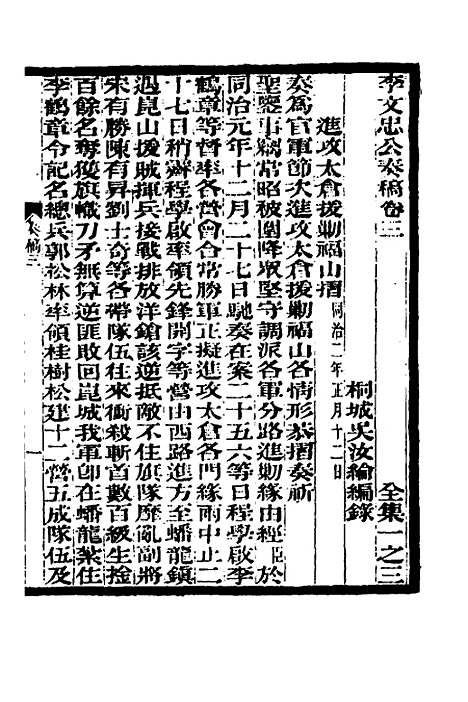 李文忠公奏稿卷三　全集一之三
桐城吳汝綸編錄
進攻太倉援勦福山摺 同治二年正月十二日
奏爲官軍節次進攻太倉援勦福山各情形恭摺奏祈
聖鑒事竊常昭被圍降眾堅守調派各軍分路進勦緣由經臣於
同治元年十二月二十七日馳奏在案二十五六等日程學啟李
鶴章等督率各營會合常勝軍正擬進攻太倉各門緣雨中止二
十七日稍霽程學啟率領先鋒開字等營由西路進方至蟠龍鎮
遇崑山援賊揮兵接戰排放洋鎗該逆抵敵不住旗隊靡亂副將
宋有勝陳有昇劉士奇等各帶隊伍往來衝殺斬首數百級生擒
百餘名奪獲旗幟刀矛無算逆匪敗回崑城我軍卽在蟠龍紮住
李鶴章令記名總兵郭松林率領桂樹松建十二營五成隊伍及
奏稿三
一